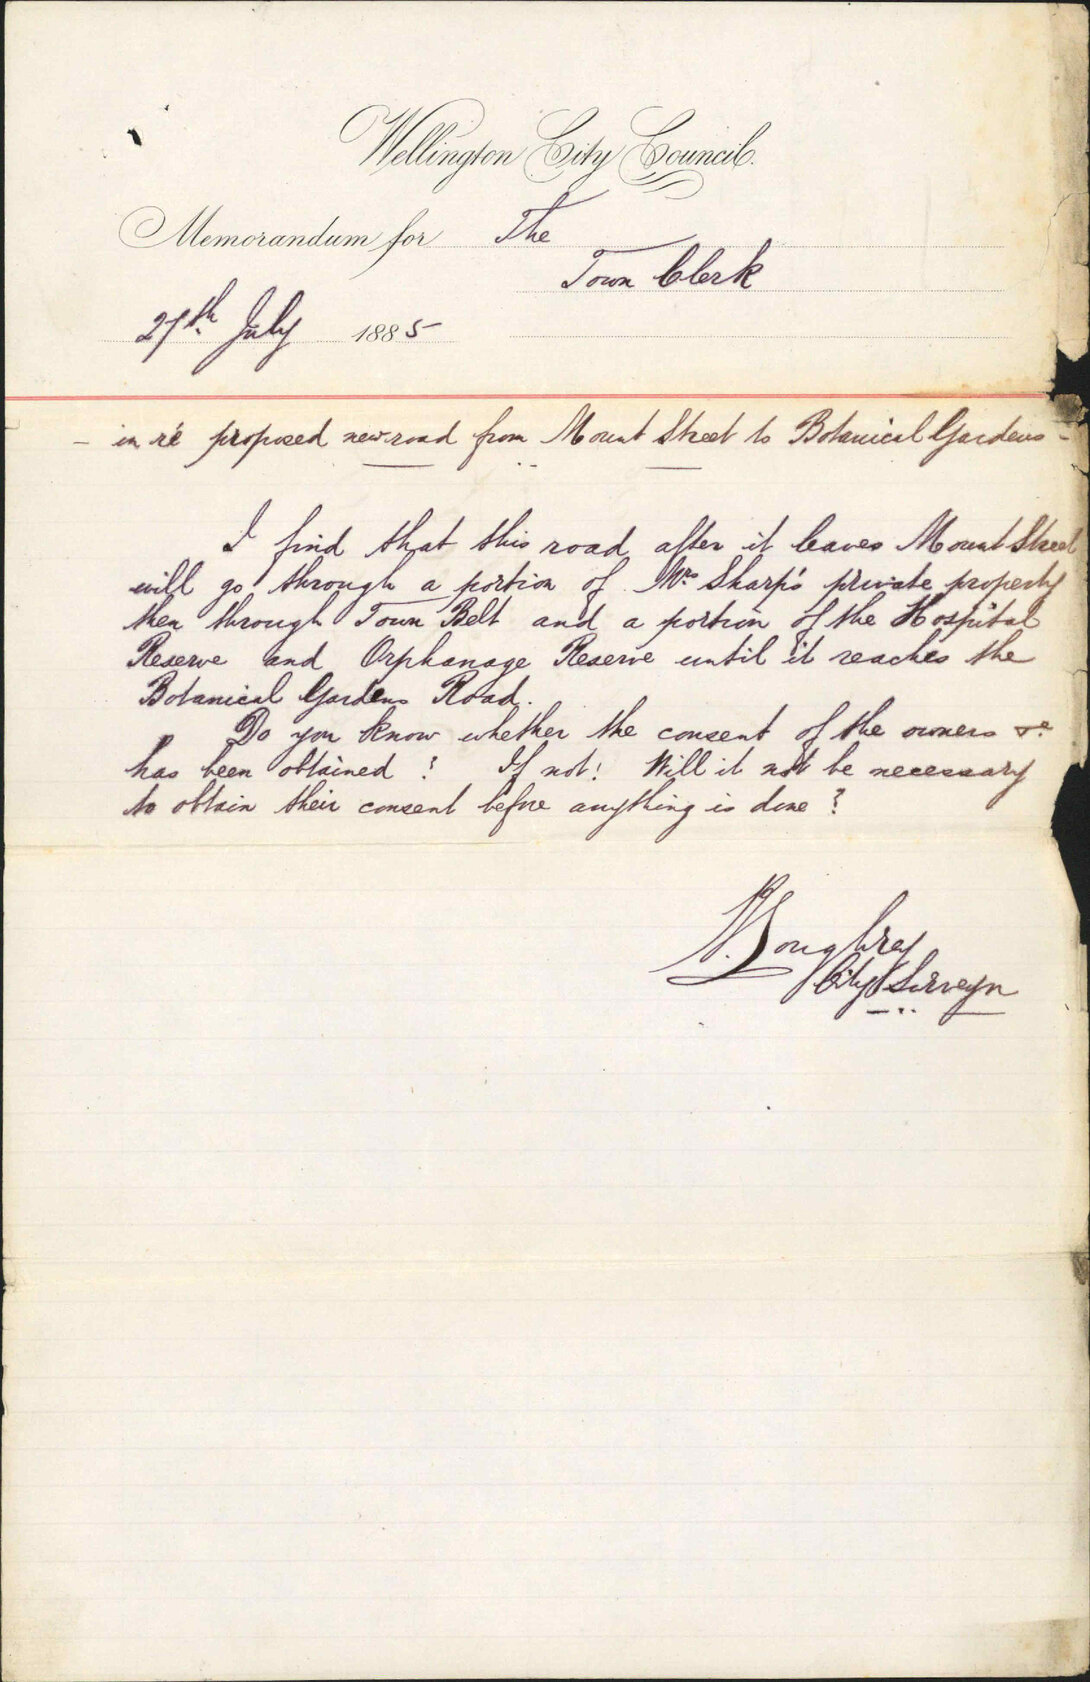 Wellington City Council.
Memorandum for The
Town Clerk
27th July 1885
- in ré proposed new road from Mount Street to Botanical Gardens -
I find that this road after it leaves Mount Street
will go through a portion of Mrs Sharp's private property
then through Town Belt and a portion of the Hospital
Reserve and Orphanage Reserve until it reaches the
Botanical Gardens Road.
Do you know whether the consent of the owners &c
has been obtained? If not! Will it not be necessary
to obtain their consent before anything is done?
Loughrey
City Surveyor